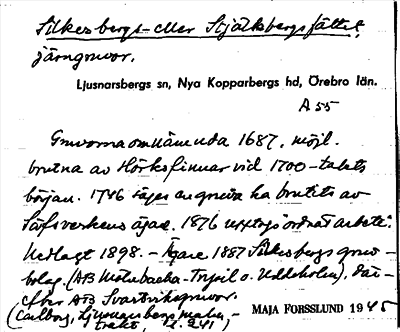 Silkesbergs- eller Stjälksbergsfältet,
järngruvor.
Ljusnarsbergs sn, Nya Kopparbergs hd, Örebro län.
A 55
Gruvorna omnämnda 1687, möjl.
brutna av Hörksfinnar vid 1700-talets
början. 1746 säges en gruva ha brutits av
Säfsverkens ägare. 1876 upptogs "ordnat arbete".
Nedlagt 1898. - Ägare 1887 Silkesbergs gruv-
bolag. (AB Molnebacka-Trysil o. Uddeholm), där-
efter AB Svartviksgruvor.
(Carlborg, Ljusnarsbergs malm-
trakt, s. 241)
MAJA FORSSLUND 1945